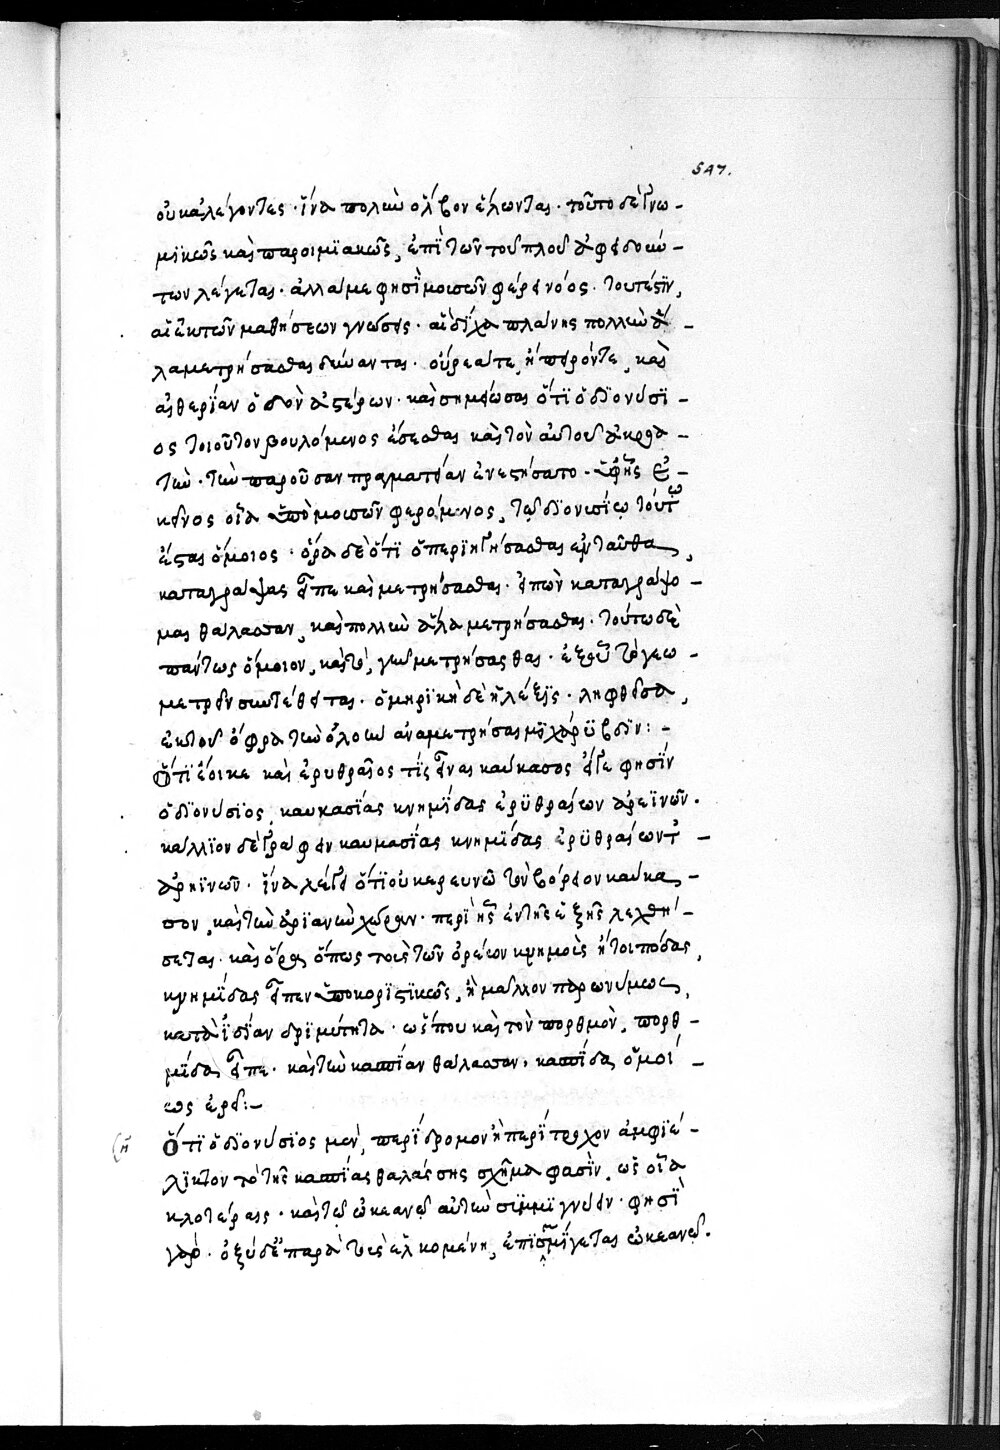 547.
οὐκ ἀλέγοντες · ἵνα πολὺν ὄλβον ἕλωνται · τοῦτο δὲ γνω -
μικῶς καὶ παροιμιακῶς, ἐπὶ τῶν τοῦ πλοῦ ἀφειδούν -
των λέγεται · ἀλλά με φησὶ μουσῶν φέρει νόος · τουτέστιν,
αἱ ἐκ τῶν μαθήσεων γνώσεις · αἳ δίχα πλάνης πολλὴν ἅ -
λα μετρήσασθαι δύνανται · οὔρεά τε, ἤπειρόν τε, καὶ
αἰθερίαν ὁδὸν ἀστέρων · καὶ σημείωσαι ὅτι ὁ διονύσι -
ος τοιοῦτον βουλόμενος ἔσεσθαι καὶ τὸν αὐτοῦ ἀκροα -
τὴν · τὴν παροῦσαν πραγματείαν ἐνεστήσατο ·
κεῖνος οἷα ὑπὸ μουσῶν φερόμενος, τῷ διονυσίῳ τούτῳ
ἔσται ὅμοιος · ὅρα δὲ ὅτι ὃ περιηγήσασθαι ἐνταῦθα,
καταγράψαι εἶπε καὶ μετρήσασθαι · εἰπὼν καταγράψο -
μαι θάλασσαν, καὶ πολλὴν ἅλα μετρήσασθαι · τούτῳ δὲ
πάντως ὅμοιον, καὶ τὸ, γεωμετρήσασθαι · ἐξ οὗ τὸ γεω -
μετρεῖν συντέθειται · ὁμηρικὴ δὲ ἡ λέξις · ληφθεῖσα,
ἐκ τοῦ ὄφρα τὴν ὀλοὴν ἀναμετρήσαιμι χάρυβδιν : -
Ὅτι ἔοικε καὶ ἐρυθραῖος τίς εἶναι καύκασος εἴγε φησὶν
ὁ διονύσιος, καυκασίας κνημῖδας ἐρυθραίων ἀρεινῶν.
κάλλιον δὲ γράφειν καυκασίας κνημῖδας ἐρυθραίων τ' -
ἀρηινῶν · ἵνα λέγῃ ὅτι οὐκ ἐρευνῶ τὸν βόρειον καύκα -
σον, καὶ τὴν ἀριανῶν χώραν · περὶ ἧς ἐν τοῖς ἑξῆς λεχθή -
σεται · καὶ ὅρα ὅπως τοὺς τῶν ὀρέων κνημοὺς ἤτοι πόδας,
κνημῖδας εἶπεν ὑποκοριστικῶς, ἢ μᾶλλον παρωνύμως,
κατὰ ἰδίαν δριμύτητα · ὥς που καὶ τὸν πορθμὸν, πορθ -
μίδα εἶπε · καὶ τὴν κασπίαν θάλασσαν, κασπίδα ὁμοί -
ως ἐρεῖ : -
Ὅτι ὁ διονύσιος μὲν, περίδρομον ἢ περίτροχον ἀμφιέ -
λικτον τὸ τῆς κασπίας θαλάσσης σχῆμα φασὶν, ὡς οἷα
κλοτέραις · καὶ τῷ ὠκεανῷ αὐτὴν συμμιγνύειν · φησὶ
γὰρ · ἑλκομένη, ἐπιμίσγεται ὠκεανῷ.